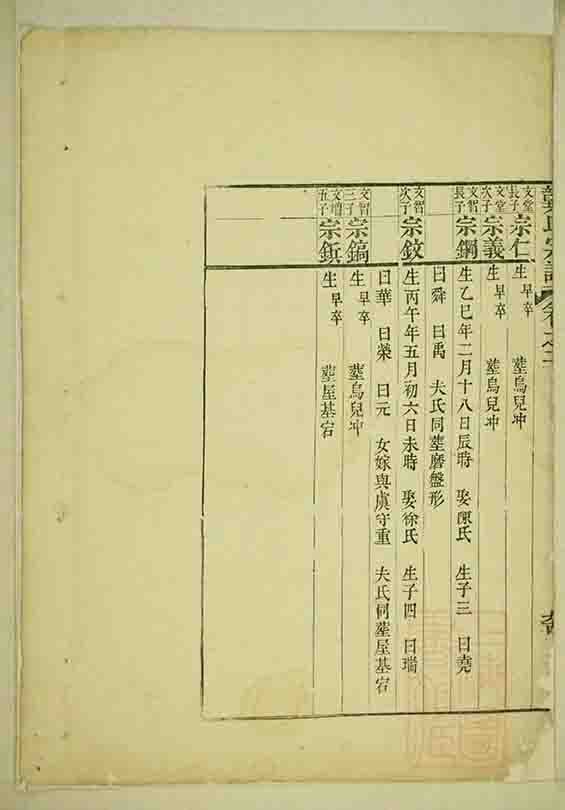 氏宗譜 卷之二
文堂長子 宗仁 生 早卒 塟烏兒冲
文堂次子 宗義 生 早卒 塟烏兒冲
文智長子 宗鋼 生乙巳年二月十八日辰時 娶陳氏 生子三 曰堯
曰舜 曰禹 夫氏同塟磨盤形
文智次子 宗鈫 生丙午年五月初六日未時 娶徐氏 生子四 曰瑞
曰華 曰榮 曰元 女嫁與虞守重 夫氏同塟屋基宕
文智三子 宗鎬 生 早卒 塟烏兒冲
文增五子 宗鋲 生 早卒 塟屋基宕